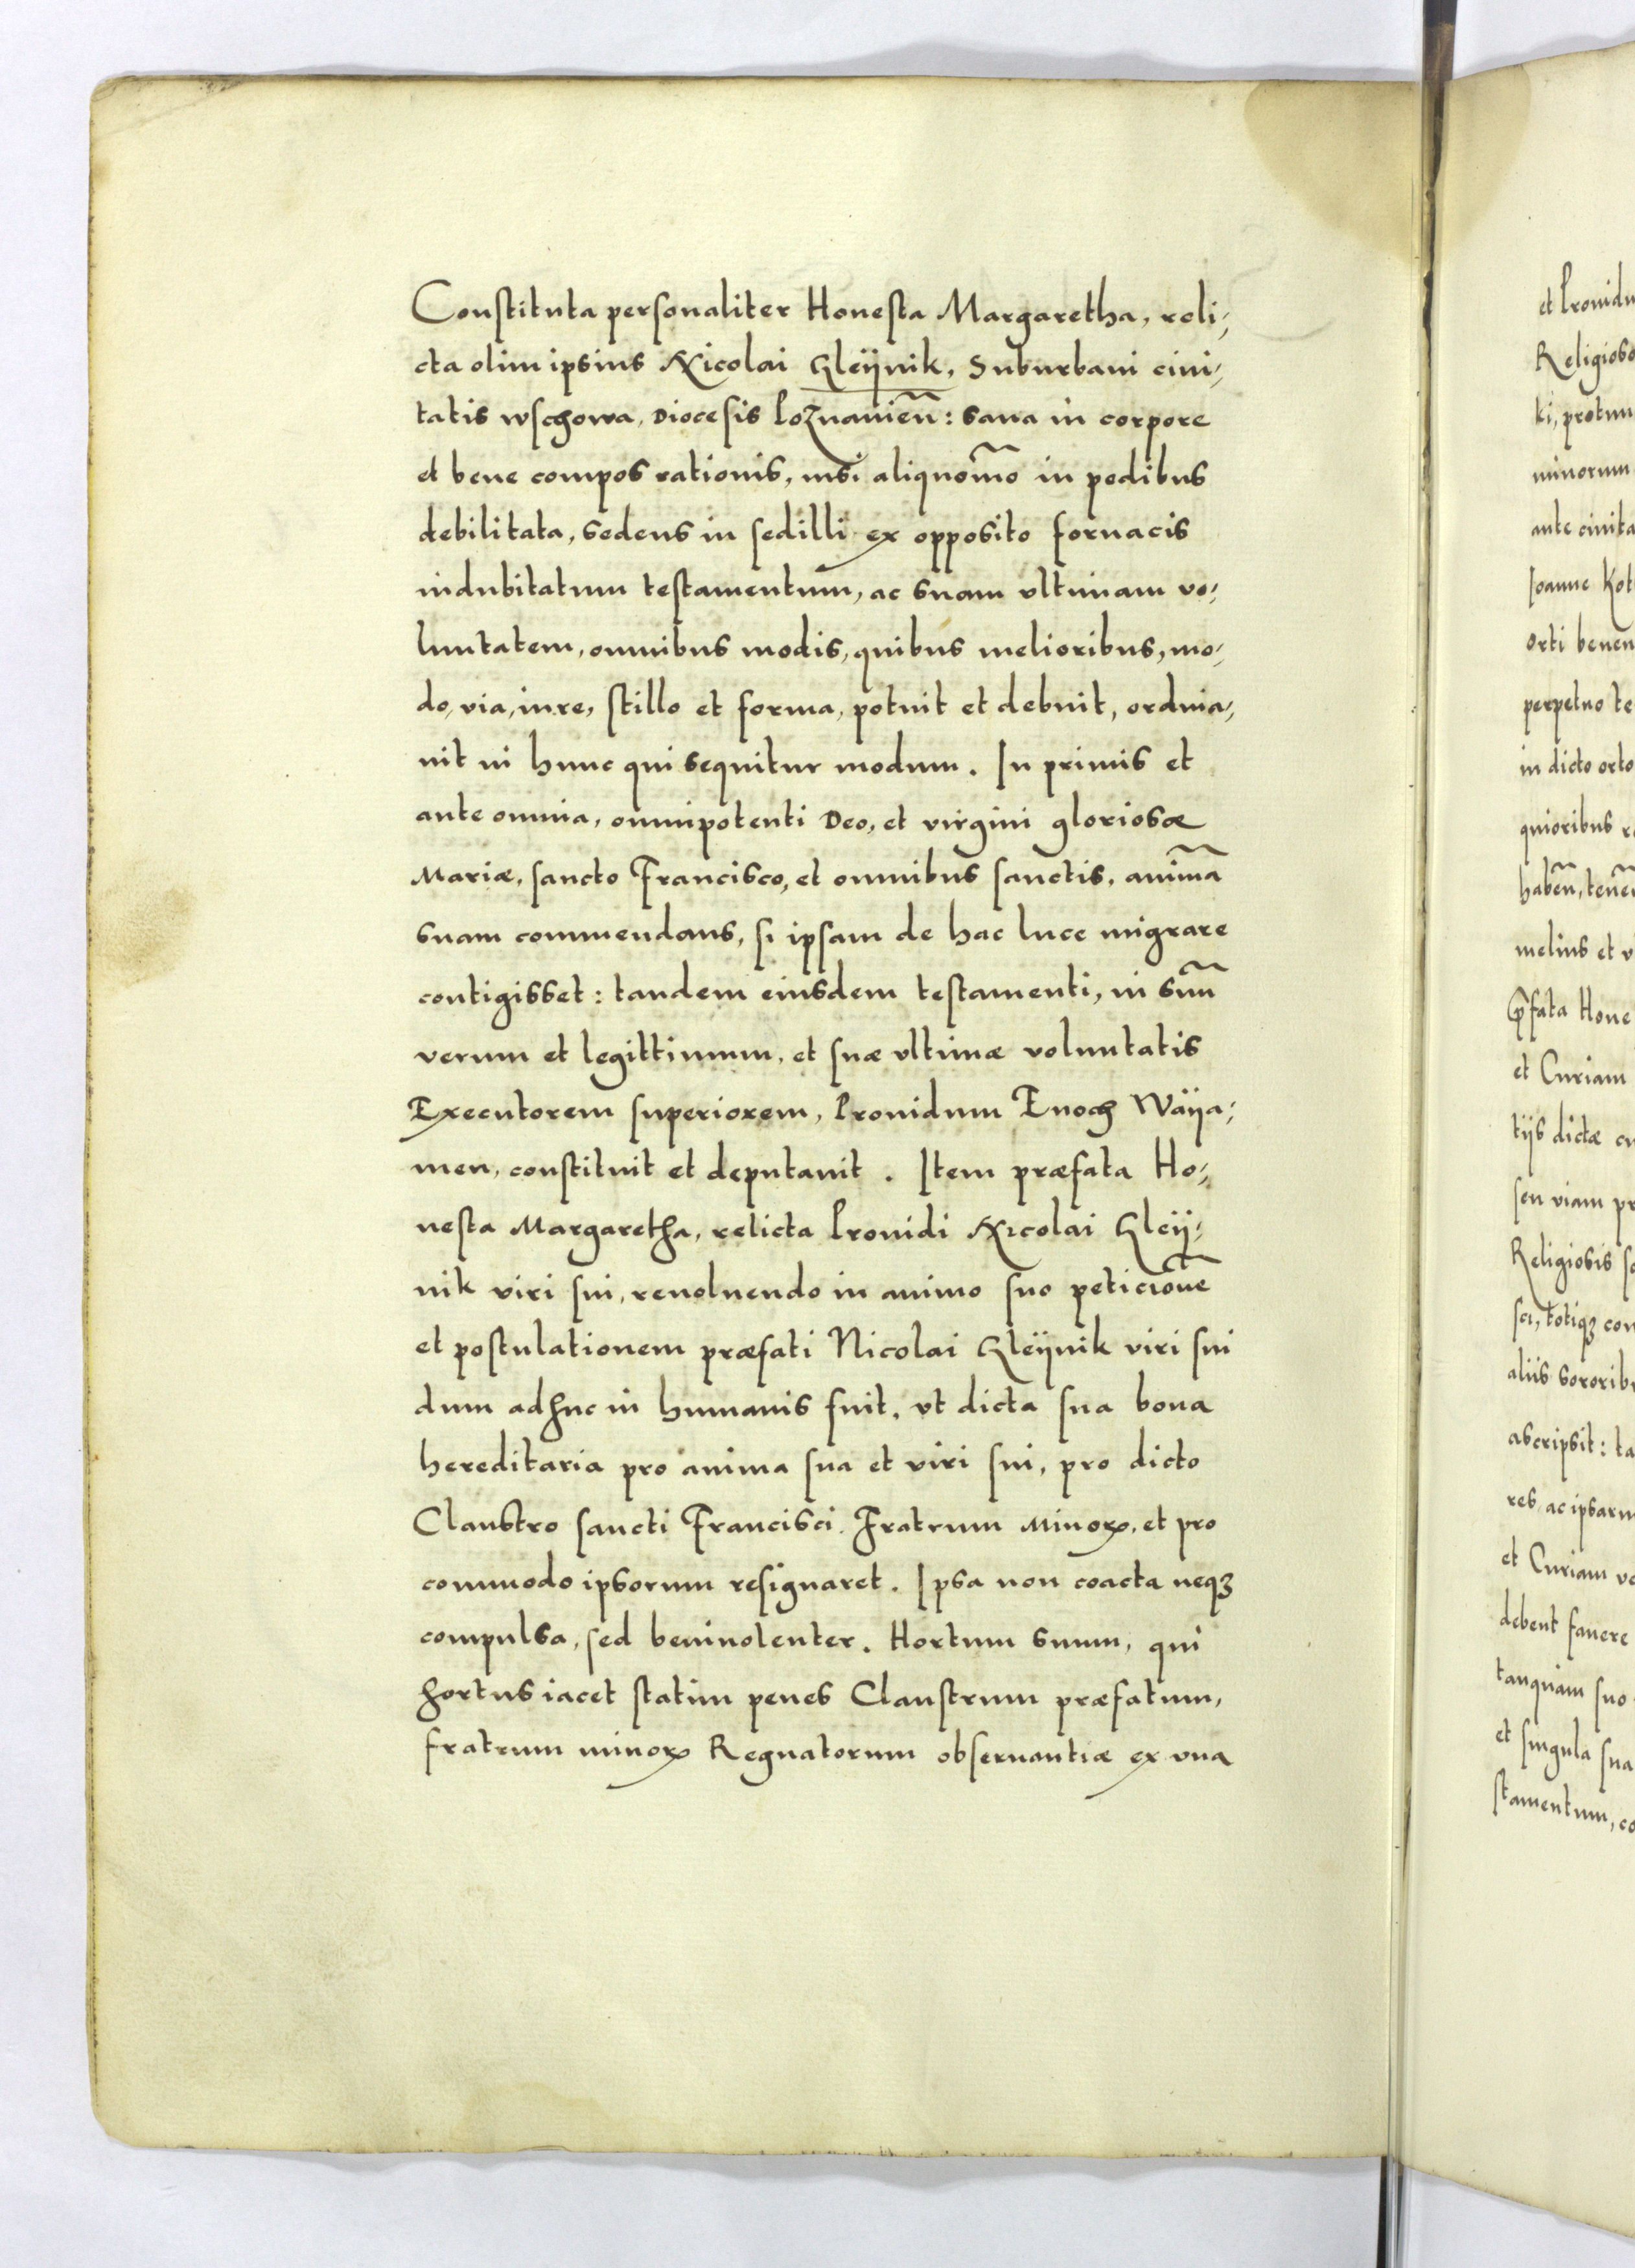 Constituta personaliter Honesta Margaretha, reli⸗
cta olim ipsius Nicolai Gleÿnik, Suburbani ciui⸗
tatis wschowa, Diocesis Poznanien̄: sana in corpore
et bene compos rationis, nisi aliquom̄o in pedibus
debilitata, sedens in sedilli ex opposito fornacis
indubitatum testamentum, ac suam vltimam vo⸗
luntatem, omnibus modis, quibus melioribus, mo⸗
do, via, iure, stillo et forma, potuit et debuit, ordina⸗
uit in hunc qui sequitur modum. In primis et
ante omnia, omnipotenti Deo, et virgini gloriosæ
Mariæ, sancto Francisco, et omnibus sanctis, anim̄a
suam commendans, si ipsam de hac luce migrare
contigisset: tandem eiusdem testamenti, in suū
verum et legittimum, et suæ vltimæ voluntatis
Executorem superiorem, Prouidum Enoch Waÿa⸗
men, constituit et deputauit. Item præfata Ho⸗
nesta Margaretha, relicta Prouidi Nicolai Gleÿ⸗
nik viri sui, reuoluendo in animo suo peticion̄e
et postulationem præfati Nicolai Gleÿnik viri sui
dum adhuc in humanis fuit, vt dicta sua bona
hereditaria pro anima sua et viri sui, pro dicto
Claustro sancti Francisci Fratrum Minoꝝ, et pro
commodo ipsorum resignaret. Ipsa non coacta neqꝫ
compulsa, sed beniuolenter. Hortum suum, qui
hortus iacet statim penes Claustrum præfatum,
fratrum minoꝝ Regnatorum obseruantiæ ex vna
et Prouidu
Religioso
ki, protun
minorum
ante ciuita
Ioanne Kot
orti benen
perpetuo te
in dicto orto
quioribus
haben̄, ten̄e
melius et v
p̄fata Hone
et Curiam
tijs dictæ cu
seu viam pr
Religiosis
sci, totiqꝫ con
aliis sororib
ascripsit: ta
res, ac ipsaru
et Curiam vo
debent fauere
tanquam suo
et singula sua
stamentum, co